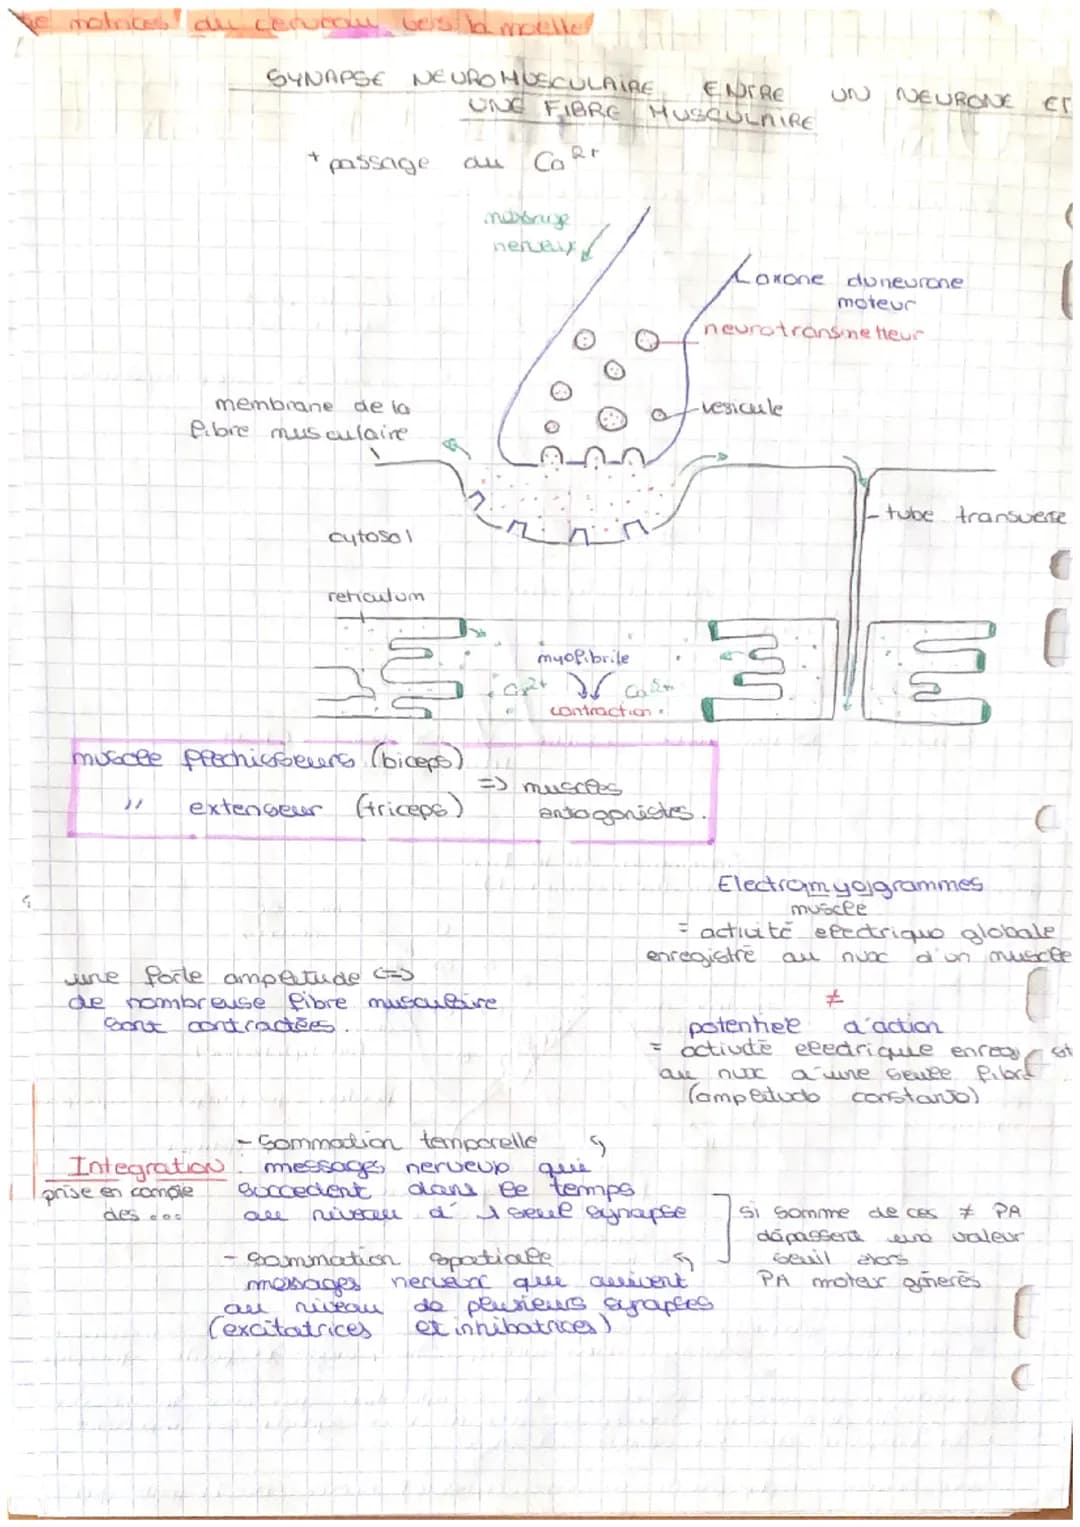 motrices du cerveau vers la moelle
SYNAPSE NEUROMUSCULAIRE ENTRE UN NEURONE ET
UNE FIBRE MUSCULAIRE
+ passage du Ca2+
message
nerveux
axone du neurone
moteur
neurotransmetteur
vesicule
membrane de la
fibre musculaire
tube transverse
cytosol
reticulum
myofibrile
Ca2+ Ca2+
contraction
muscle flechisseurs (biceps)
=> muscles
" extenseur (triceps) antagonistes.
Electromyogrammes
muscle
= activité electrique globale
enregistré au nvx d'un muscle
une forte amplitude <=>
de nombreuse fibre musculaire
sont contractées.
≠
potentiel d'action
= activité electrique enreg
au nvx d'une seule fibre
(amplitude constante)
- Sommation temporelle
Integration : messages nerveux qui
prise en compte succedent dans le temps
des ... au niveau d' 1 seul synapse
si somme de ces ≠ PA
dépassent une valeur
seuil alors
PA moteur génerés
- Sommation spatiale
messages nerveux qui arrivent
au niveau de plusieurs synapses
(excitatrices et inhibatrices)